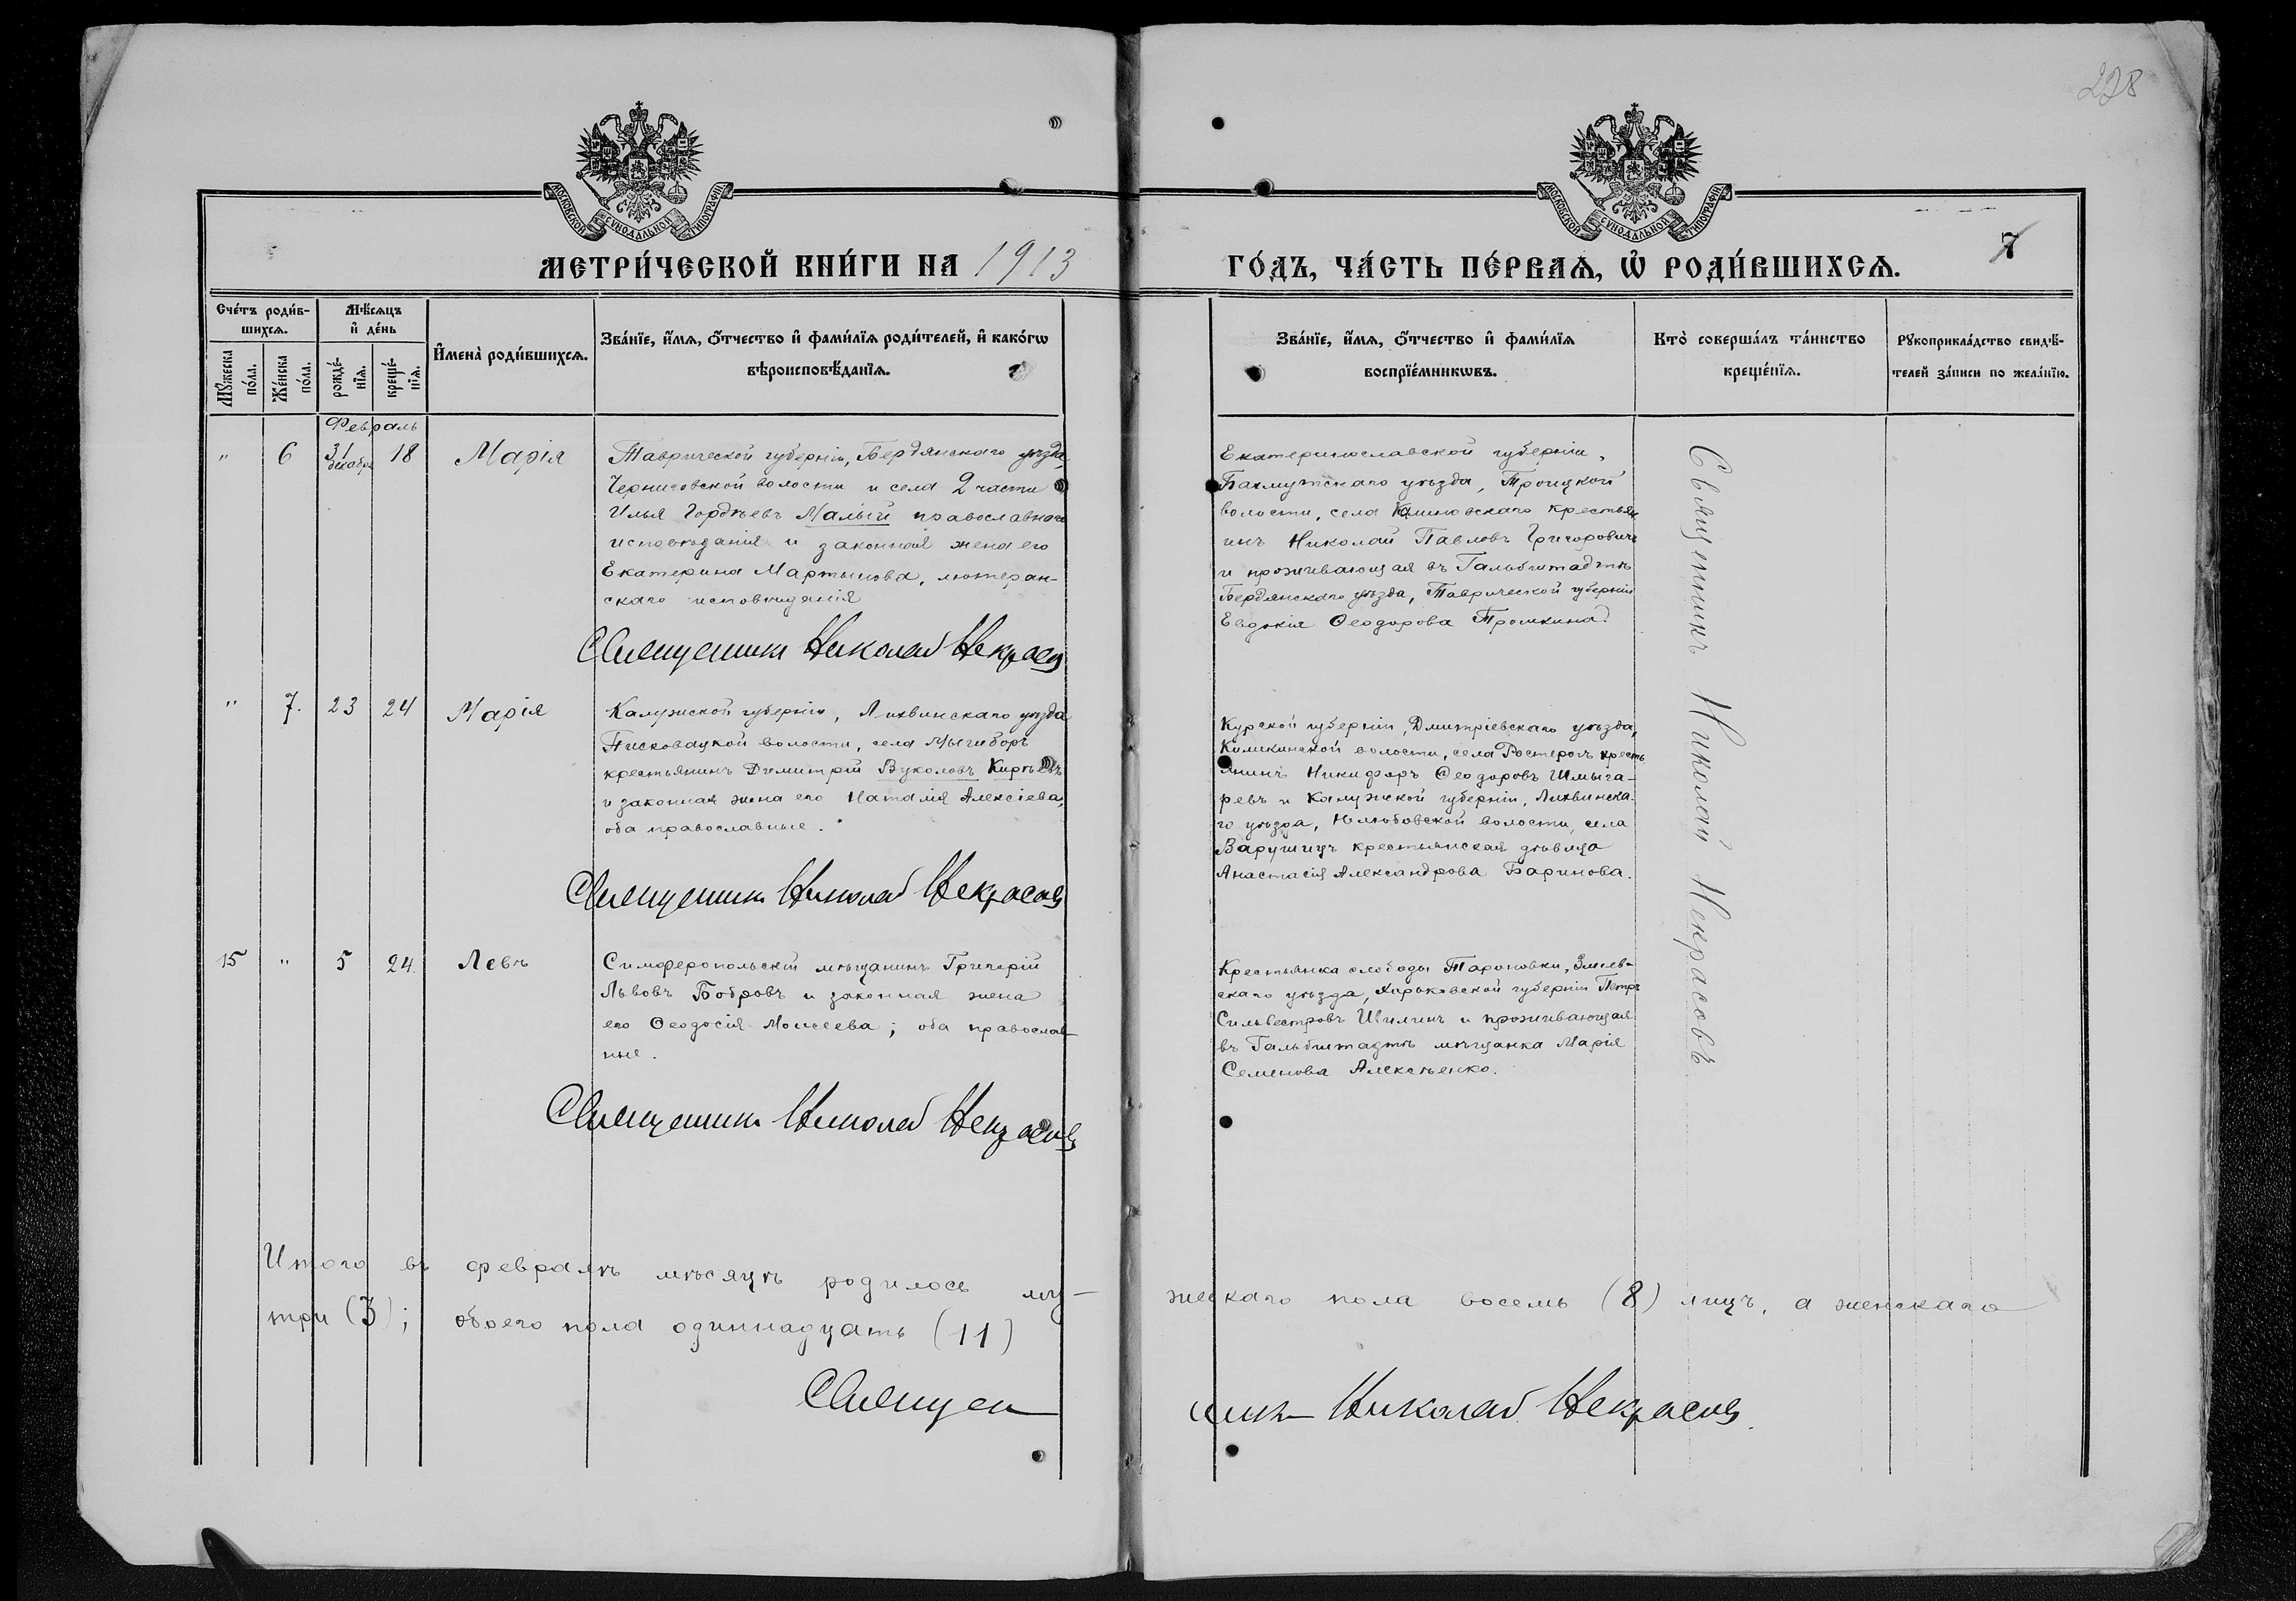 228
МОСКОВСКОЙ СѴНОДАЛЬНОЙ ТИПОГРАФІИ
МОСКОВСКОЙ СѴНОДАЛЬНОЙ ТИПОГРАФІИ
МЕТРИ́ЧЕСКОЙ КНИ́ГИ НА 1913
ГО́ДЪ, ЧА́СТЬ ПЕ́РВАѦ, Ѡ҆ РОДИ́ВШИХСѦ.
7
Сче́тъ роди́в-
шихсѧ.
Мꙋ́жеска
по́ла.
Же́нска
по́ла.
Мѣ́сѧцъ
и҆ де́нь
рожде́-
нїѧ.
креще́-
нїѧ.
И҆мена̀ роди́вшихсѧ.
Зва́нїе, и҆́мѧ, ѻ҆́тчество и҆ фами́лїѧ роди́телей, и҆ како́гѡ
вѣроисповѣ́данїѧ.
Зва́нїе, и҆́мѧ, ѻ҆́тчество и҆ фами́лїѧ
воспрїе́мникѡвъ.
Кто̀ соверша́лъ та́инство
креще́нїѧ.
Рꙋкоприкла́дство свидѣ́-
телей за́писи по жела́нїю.
Февраль
" 6 31 декабр 18 Марія
Таврической губерніи, Бердянского уѣзда,
Черниговской волости и села 2 части
Илья Гордѣевъ Малый православнаго
исповѣданія и законная жена его
Екатерина Мартынова, лютеран-
скаго исповѣданія
Священникъ Николай Некрасовъ
Екатеринославской губерніи,
Бахмутскаго уѣзда, Троицкой
волости, села крестьян
инъ Николай Павловъ Григоровичъ
и проживающая въ Гальбштадтѣ
Бердянскаго уѣзда, Таврической губерніи
Евдокія Ѳеодорова
Священникъ Николай Некрасовъ
" 7. 23 24 Марія
Калужской губерніи, Лихвинскаго уѣзда
Песковацкой волости, села
крестьянинъ Димитрій Вуколовъ Кирѣевъ
и законная жена его Наталія Алексіева,
оба православные.
Священникъ Николай Некрасовъ
Курской губерніи, Дмитріевскаго уѣзда,
волости, села кресть
янинъ Никифоръ Ѳеодоровъ Шмыга-
ревъ и Калужской губерніи, Лихвинска-
го уѣзда, волости, села
крестьянская дѣвица
Анастасія Александрова Баринова.
15 " 5 24. Левъ
Симферопольскій мѣщанинъ Григорій
Львовъ Бобровъ и законная жена
его Ѳеодосія Моисеева; оба православ-
ные.
Священникъ Николай Некрасовъ
Крестьянка слободы Тарановки, Зміев-
скаго уѣзда, Харьковской губерніи Петръ
Сильвестровъ и проживающая
въ Гальбштадтѣ мѣщанка Марія
Семенова Алексѣенко.
Итого въ февралѣ мѣсяцѣ родилось му-
жескаго пола восемь (8) лицъ, а женскаго
три (3); обоего пола одиннадцать (11)
Священ
никъ Николай Некрасовъ.